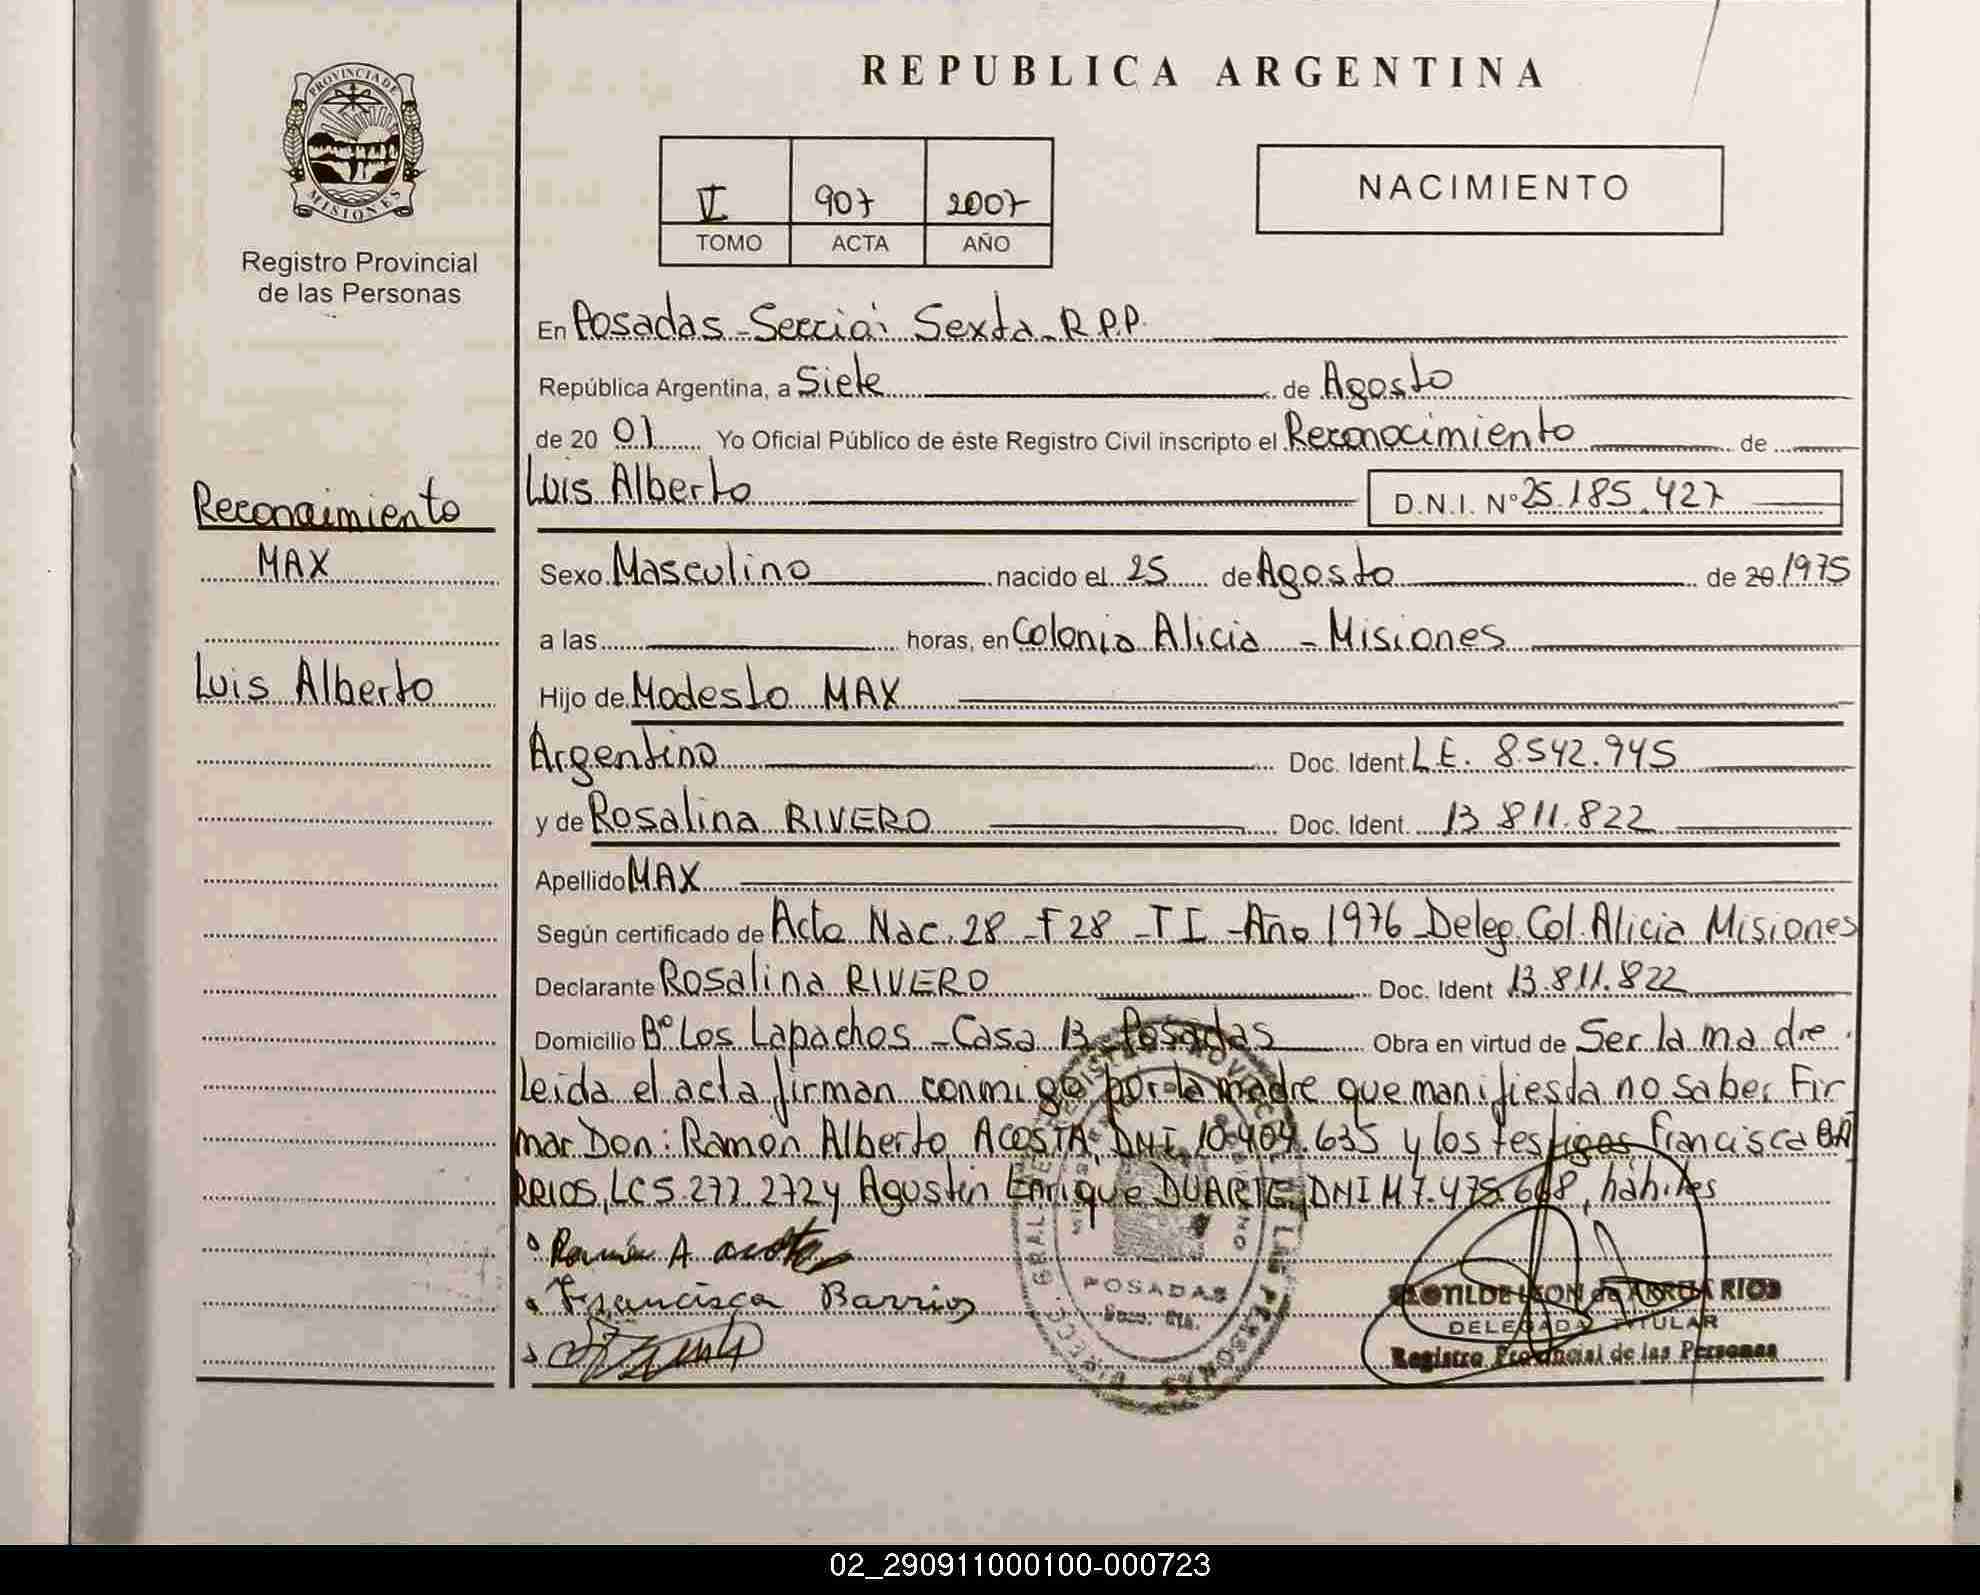 PROVINCIA DE
MISIONES
Registro Provincial
de las Personas
REPUBLICA ARGENTINA
VI 907 2007
TOMO ACTA AÑO
NACIMIENTO
En Posadas - Secció: Sexta - R.P.P.
República Argentina, a Siete de Agosto
de 20 07 Yo Oficial Público de éste Registro Civil inscripto el Reconocimiento de
Luis Alberto D.N.I. Nº 25.185.427
Reconocimiento
MAX
Luis Alberto
Sexo Masculino nacido el 25 de Agosto de 20 1975
a las horas, en Colonia Alicia - Misiones
Hijo de Modesto MAX
Argentino Doc. Ident. L.E. 8.542.945
y de Rosalina RIVERO Doc. Ident. 13.811.822
Apellido MAX
Según certificado de Acta Nac. 28 - F 28 - T I - Año 1976 Deleg. Col. Alicia Misiones
Declarante Rosalina RIVERO Doc. Ident 13.811.822
Domicilio Bº Los Lapachos - Casa 13 - Posadas Obra en virtud de Ser la madre.
Leida el acta firman conmigo por la madre que manifiesta no saber Fir
mar Don: Ramon Alberto ACOSTA, DNI 10.404.635 y los testigos Francisca BA
RRIOS, LC 5.272.272 y Agustin Enrique DUARTE, DNI M 7.475.668, hábiles
Ramón A acosta
Francisca Barrios
POSADAS
CLOTILDE LEON de ARRUA RIOS
DELEGADA TITULAR
Registro Provincial de las Personas
02_290911000100-000723